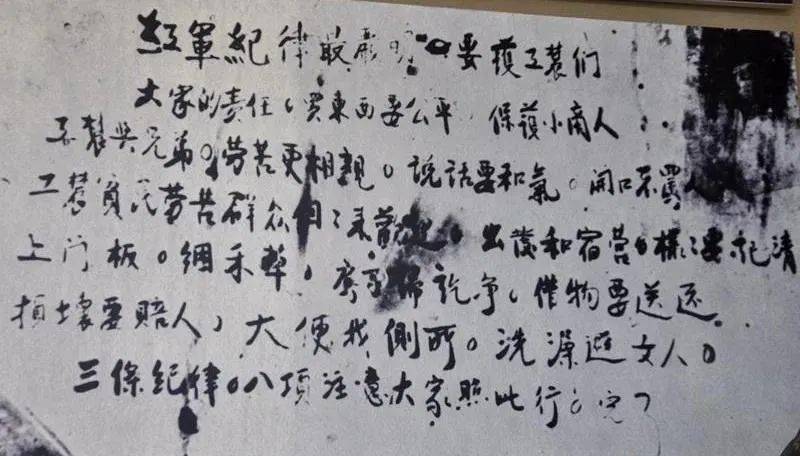 红軍紀律最嚴明。要護工農们
大家的責任。買東西要公平 保護小商人
工農與兄弟。劳苦更相親。说話要和氣。開口不罵人
工農貧民劳苦群众個々来歡迎。出發和宿营。樣々要記清
上门板。綑禾草。房子掃乾净。借物要送还。
損壞要賠人,大便找側所。洗澡避女人。
三條紀律。八項注意大家照此行。完了